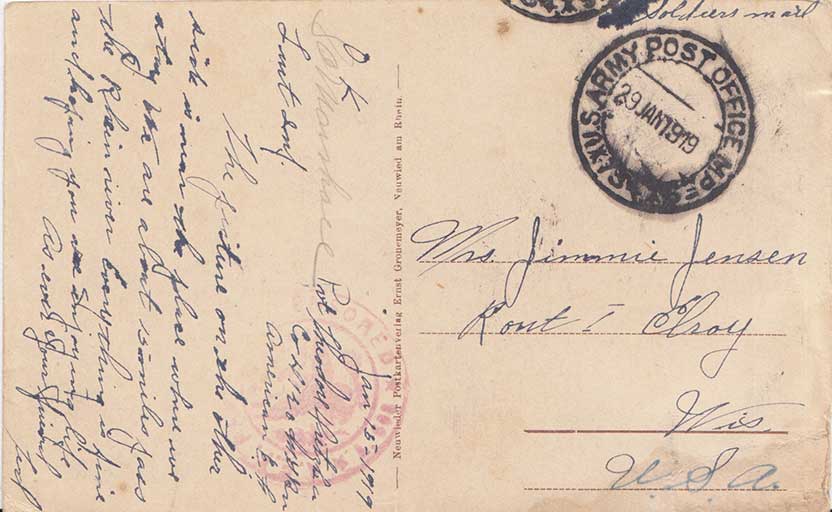 Soldiers mail
U.S. ARMY POST OFFICE M.P.E.S.
29 JAN 1919
Mrs. Jimmie Jensen
Rout I Elroy
Wis.
U.S.A.
Neuwieder Postkartenverlag Ernst Gronemeyer, Neuwied am Rhein.
Jan 15-1919
Pvt
Co H
American E. F.
O K
Marshall
Inf.
The picture on the other
side is near the place where we
stay We are about 15 miles
the Rhein river Everything is fine
and hoping you are enjoying life
As ever Your friend